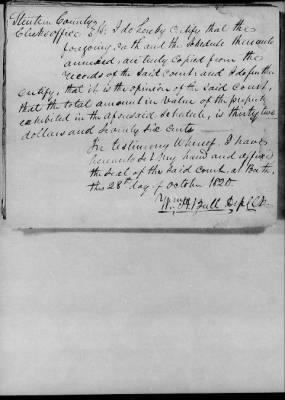 Steuben County
Clerks office Ss: I do hereby certify that the
foregoing oath and the Schedule thereunto
annexed, are truly copied from the
records of the said court: and I do further
certify, that it is the opinion of the said court,
that the total amount in value of the property
exhibited in the aforesaid schedule, is thirty two
dollars and Seventy Six cents
In testimony Whereof, I have
hereunto Set my hand and affixed
the Seal of the Said Court, at Bath,
this 28th day of October 1820.
Wm H. Bull Dep. Clk.